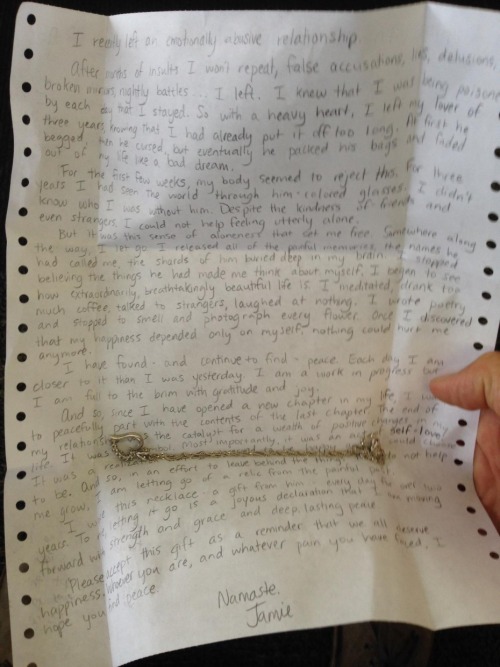 I recently left an emotionally abusive relationship.
After years of insults I won't repeat, false accusations, lies, delusions,
broken mirrors, nightly battles... I left. I knew that I was being poisoned
by each day that I stayed. So with a heavy heart, I left my lover of
three years, knowing that I had already put it off too long. At first he
begged, then he cursed, but eventually he packed his bags and faded
out of my life like a bad dream.
For the first few weeks, my body seemed to reject this. For three
years I had seen the world through him-colored glasses. I didn't
know who I was without him. Despite the kindness of friends and
even strangers, I could not help feeling utterly alone.
But it was this sense of aloneness that set me free. Somewhere along
the way, I let go. I released all of the painful memories, the names he
had called me, the shards of him buried deep in my brain. I stopped
believing the things he had made me think about myself. I began to see
how extraordinarily, breathtakingly beautiful life is. I meditated, drank too
much coffee, talked to strangers, laughed at nothing. I wrote poetry
and stopped to smell and photograph every flower. Once I discovered
that my happiness depended only on myself, nothing could hurt me
anymore.
I have found - and continue to find - peace. Each day I am
closer to it than I was yesterday. I am a work in progress but
I am full to the brim with gratitude and joy.
And so, since I have opened a new chapter in my life, I
to peacefully part with the contents of the last chapter. The end of
my relationship the catalyst for a wealth of positive changes in my
life. It was most importantly, it was self-love.
It was a realization that could choose
to be. And so, in an effort to leave behind do not help
me grow, am letting go of a relic from the painful
I wore this necklace - a gift from him - every day for well two
years. To letting it go is a joyous declaration that moving
forward with strength and grace and deep, lasting peace.
Please accept this gift as a reminder that we all deserve
happiness. Whoever you are, and whatever pain you have faced, I
hope you find peace.
Namaste.
Jamie